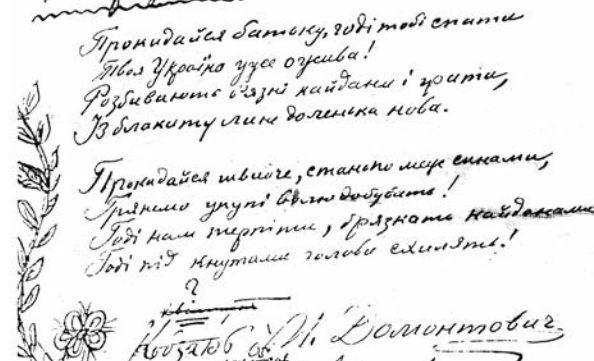 Прокидайся батьку, годі тобі спати
Твоя Україна уже ожива!
Розбивають в'язні кайдани і грати,
Із блакиту лине доленька нова.
Прокидайся швидче, станьмо межи синами,
Грянемо укупі волю добувать!
Годі нам терпіти, брязкать кайданами
Годі під кнутами голови схилять!
?
Кобзарю
Домонтович